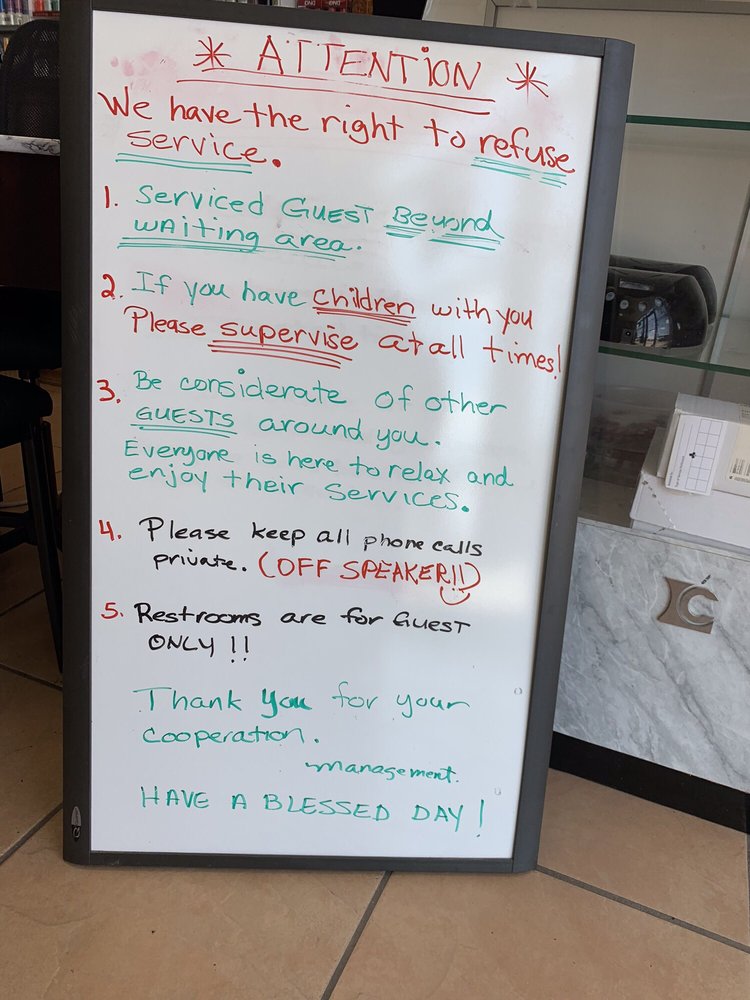 * ATTENTION *
We have the right to refuse
service.
1. Serviced GUEST Beyond
waiting area.
2. If you have children with you
Please supervise at all times!
3. Be considerate of other
GUESTS around you.
Everyone is here to relax and
enjoy their services.
4. Please keep all phone calls
private. (OFF SPEAKER!!)
5. Restrooms are for GUEST
ONLY !!
Thank You for your
cooperation.
~management.
HAVE A BLESSED DAY!